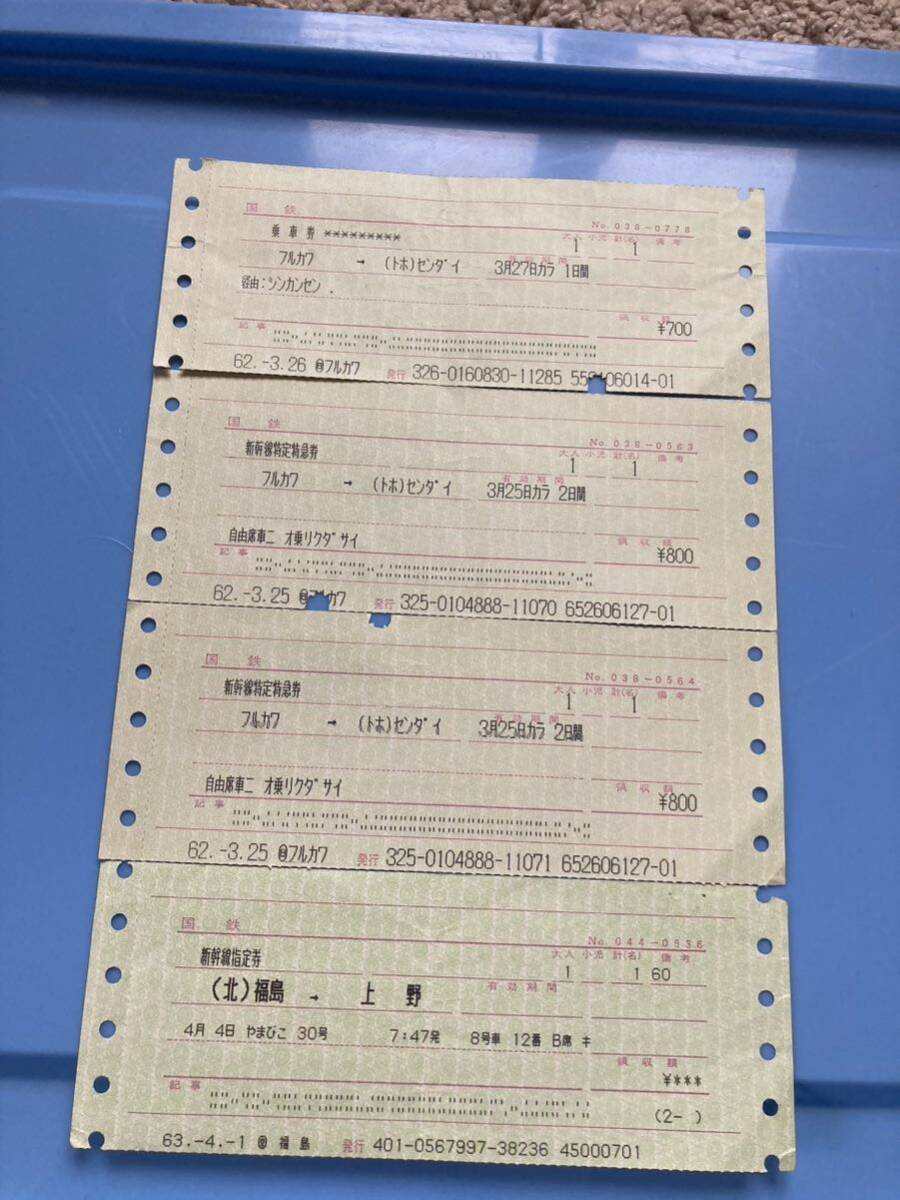 国 鉄
No. 038-0778
乗車券 *********
大人 小児 計(名) 備考
1 1
フルカワ → (トホ)センダイ 3月27日カラ 1日間
有効期間
経由:シンカンセン .
領収額
¥700
記事
62.-3.26 フルカワ 発行 326-0160830-11285 06014-01
国 鉄
No. 038-0563
新幹線特定特急券
大人 小児 計(名) 備考
1 1
有効期間
フルカワ → (トホ)センダイ 3月25日カラ 2日間
自由席車ニ オ乗リクダサイ
領収額
¥800
記事
62.-3.25 フルカワ 発行 325-0104888-11070 652606127-01
国 鉄
No. 038-0564
新幹線特定特急券
大人 小児 計(名) 備考
1 1
有効期間
フルカワ → (トホ)センダイ 3月25日カラ 2日間
自由席車ニ オ乗リクダサイ
領収額
¥800
記事
62.-3.25 フルカワ 発行 325-0104888-11071 652606127-01
国 鉄
No. 044-0536
新幹線指定券
大人 小児 計(名) 備考
1 1 60
有効期間
(北)福島 → 上 野
4月 4日 やまびこ 30号 7:47発 8号車 12番 B席 キ
領収額
¥***
記事
(2- )
63.-4.-1 福 島 発行 401-0567997-38236 45000701